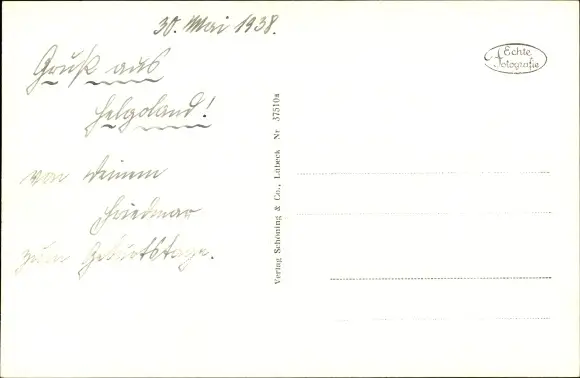 30. Mai 1938.
Gruß aus
Helgoland!
von Deinem
Friedmar
zum Geburtstage.
Verlag Schöning & Co., Lübeck Nr 37510a
Echte
Fotografie